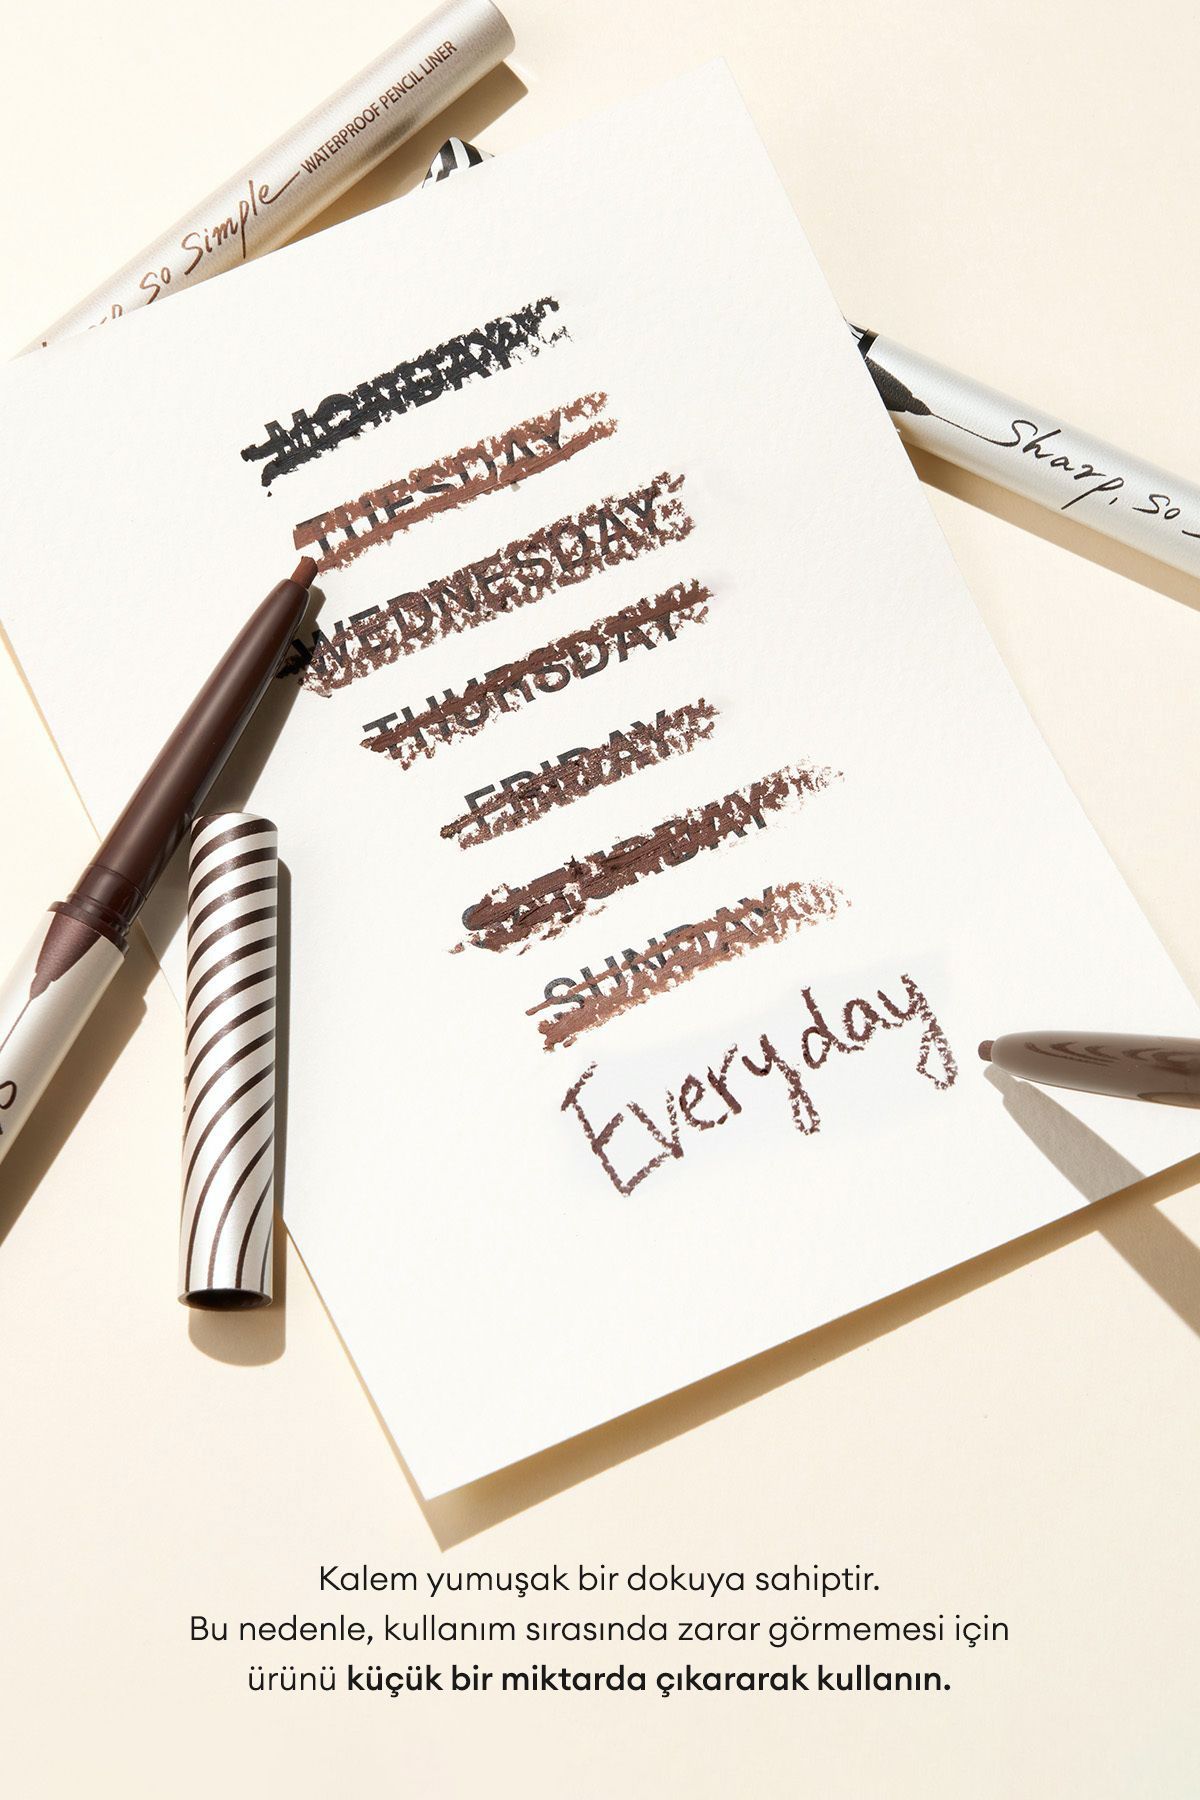 so Simple WATERPROOF PENCIL LINER
MONDAY
TUESDAY
Sharp, so
WEDNESDAY
THURSDAY
FRIDAY
SATURDAY
SUNDAY
Everyday
Kalem yumuşak bir dokuya sahiptir.
Bu nedenle, kullanım sırasında zarar görmemesi için
ürünü küçük bir miktarda çıkararak kullanın.